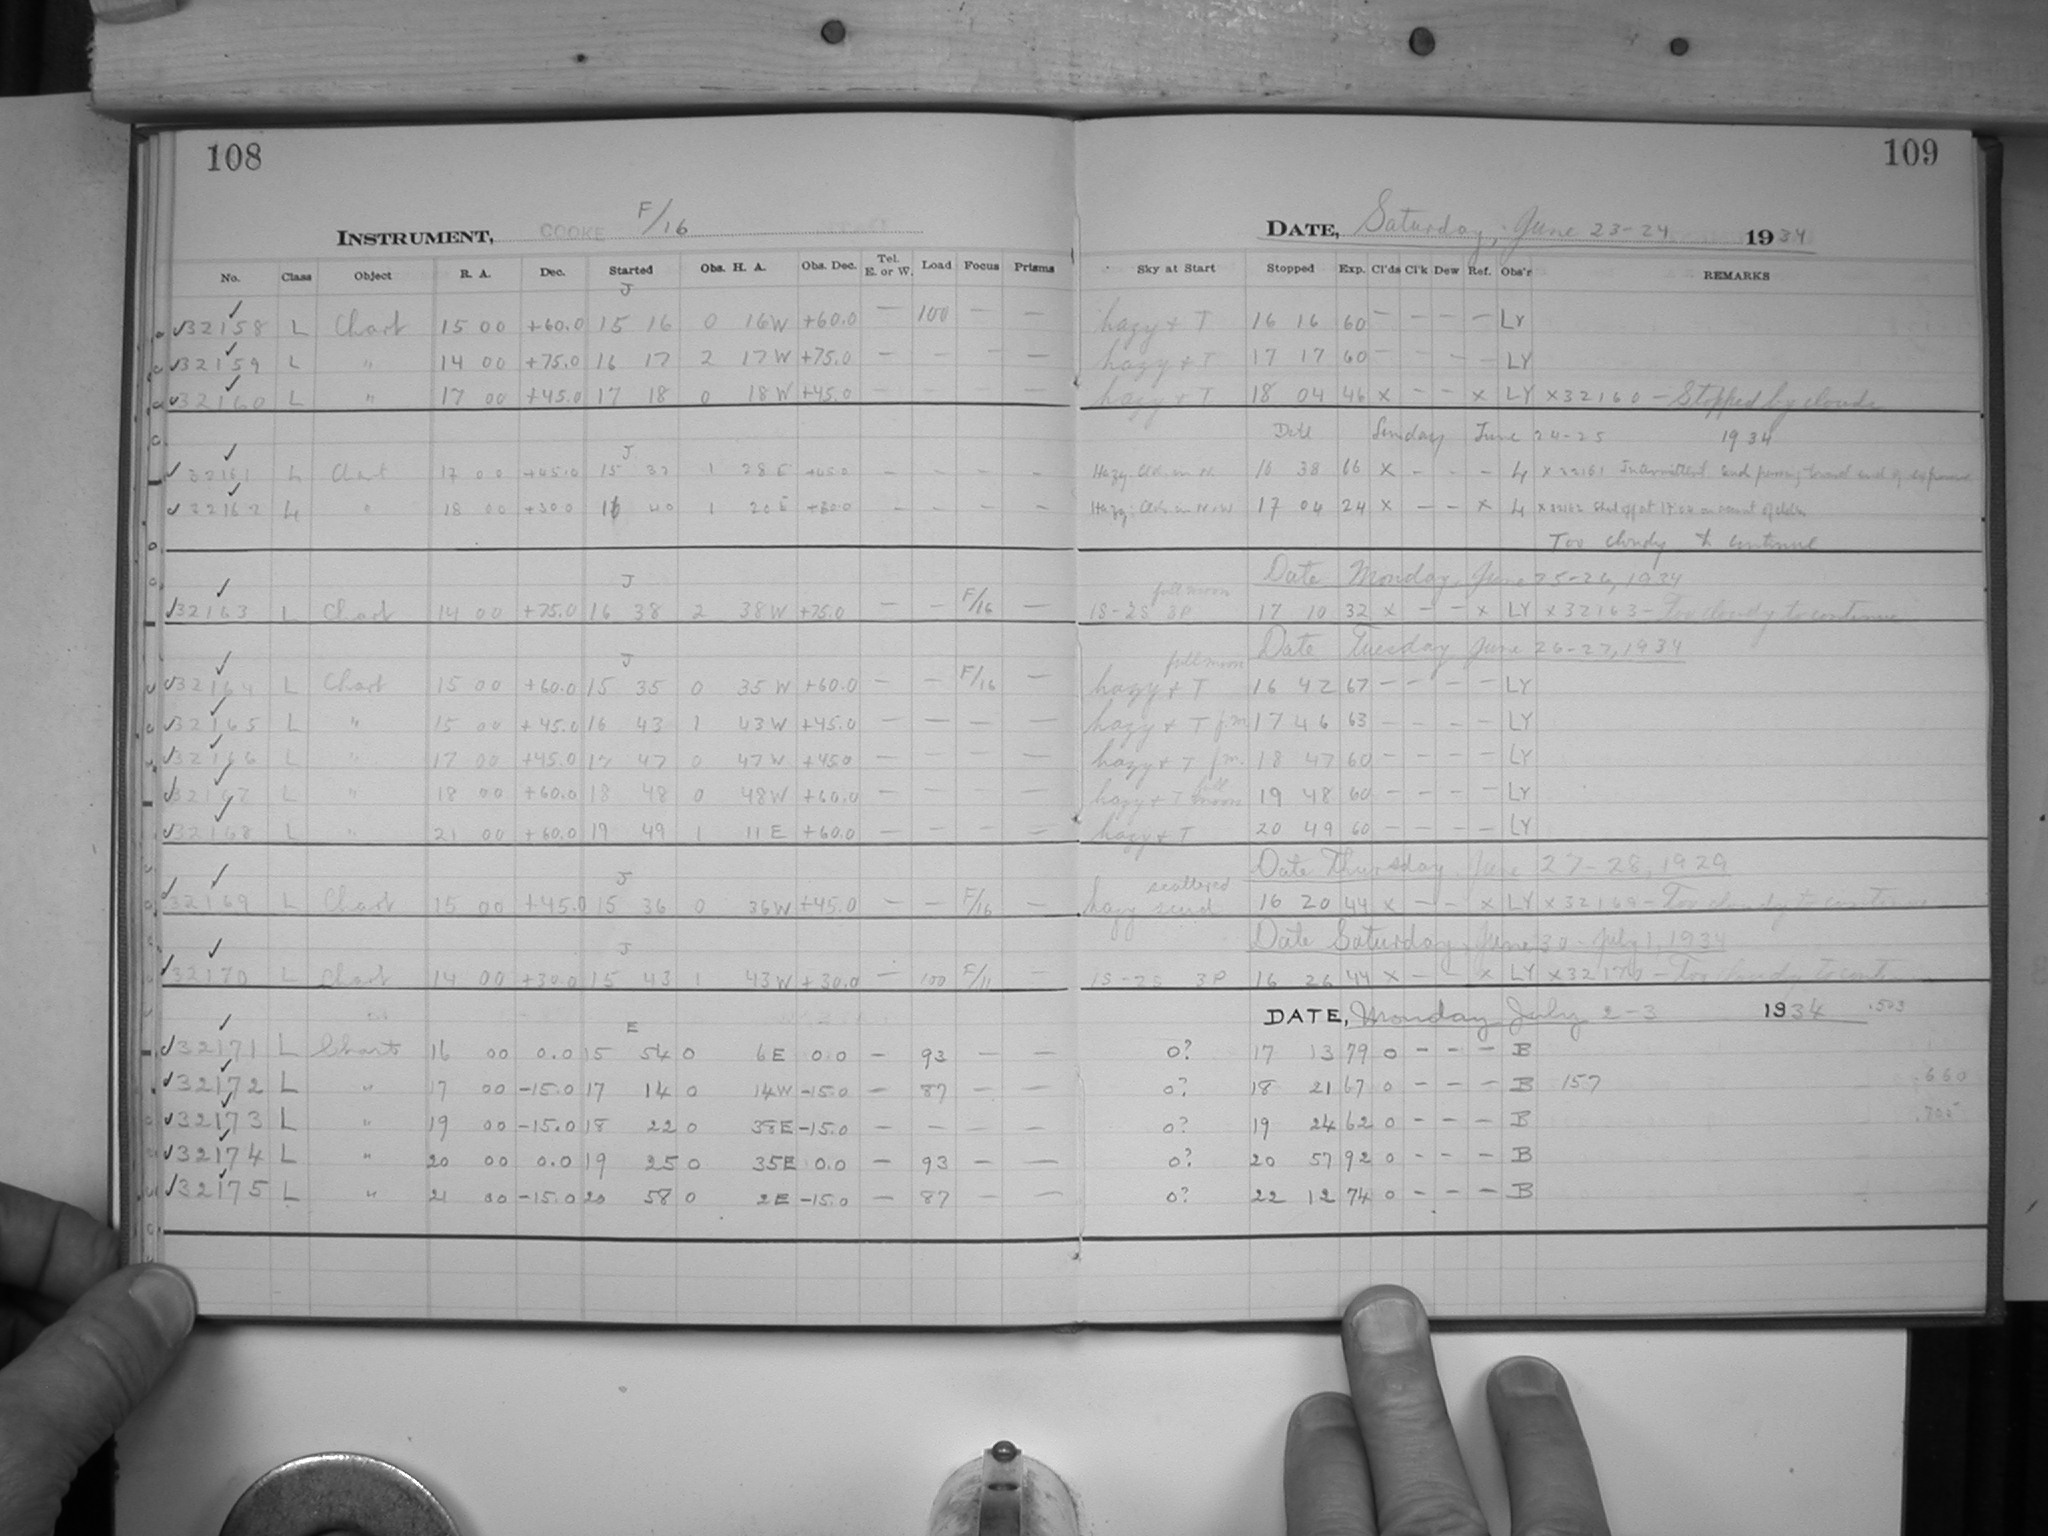 108
109
INSTRUMENT, COOKE F/16
DATE, Saturday, June 23-24 1934
No. Class Object R. A. Dec. Started Obs. H. A. Obs. Dec. Tel. E. or W. Load Focus Prisms Sky at Start Stopped Exp. Cl'ds Cl'k Dew Ref. Obs'r REMARKS
J
32158 L Chart 15 00 +60.0 15 16 0 16W +60.0 — 100 — — hazy + T 16 16 60 — — — — LY
32159 L " 14 00 +75.0 16 17 2 17W +75.0 — — — — hazy + T 17 17 60 — — — — LY
32160 L " 17 00 +45.0 17 18 0 18W +45.0 — — — — hazy + T 18 04 46 x — — x LY x32160 — Stopped by clouds
Date Sunday June 24-25 1934
J
32161 L Chart 17 00 +45.0 15 32 1 28E +45.0 — — — — Hazy 16 38 66 x - - - L x 32161 Intermittent end of exposure
32162 L " 18 00 +30.0 16 40 1 20E +30.0 - - - - Hazy 17 04 24 x - - x L x 32162 at 17:04 on account of clouds
Too cloudy to continue
Date Monday, June 25-26, 1934
J full moon
32163 L Chart 14 00 +75.0 16 38 2 38W +75.0 — — F/16 — 1S-2S 3P 17 10 32 x — — x LY x32163 — Too cloudy to continue
Date Tuesday June 26-27, 1934
J full moon
32164 L Chart 15 00 +60.0 15 35 0 35W +60.0 — — F/16 — hazy + T 16 42 67 — — — — LY
32165 L " 15 00 +45.0 16 43 1 43W +45.0 — — — — hazy + T f.m. 17 46 63 — — — — LY
32166 L " 17 00 +45.0 17 47 0 47W +45.0 — — — — hazy + T f.m. 18 47 60 — — — — LY
32167 L " 18 00 +60.0 18 48 0 48W +60.0 — — — — hazy + T full moon 19 48 60 — — — — LY
32168 L " 21 00 +60.0 19 49 1 11E +60.0 — — — — hazy + T 20 49 60 — — — — LY
Date Thursday, June 27-28, 1929
J scattered
32169 L Chart 15 00 +45.0 15 36 0 36W +45.0 — — F/16 — hazy scud 16 20 44 x — — x LY x32169 — Too cloudy to continue
Date Saturday, June 30-July 1, 1934
J
32170 L Chart 14 00 +30.0 15 43 1 43W +30.0 — 100 F/11 — 1S-2S 3P 16 26 44 x — — x LY x32170 — Too cloudy to cont.
DATE, Monday July 2-3 1934 .503
E
32171 L Chart 16 00 0.0 15 54 0 6E 0.0 — 93 — — 0? 17 13 79 0 - - - B
32172 L " 17 00 -15.0 17 14 0 14W -15.0 — 87 — — 0? 18 21 67 0 - - - B 157 .660
32173 L " 19 00 -15.0 18 22 0 38E -15.0 — — — — 0? 19 24 62 0 - - - B
32174 L " 20 00 0.0 19 25 0 35E 0.0 — 93 — — 0? 20 57 92 0 - - - B
32175 L " 21 00 -15.0 20 58 0 2E -15.0 — 87 — — 0? 22 12 74 0 - - - B